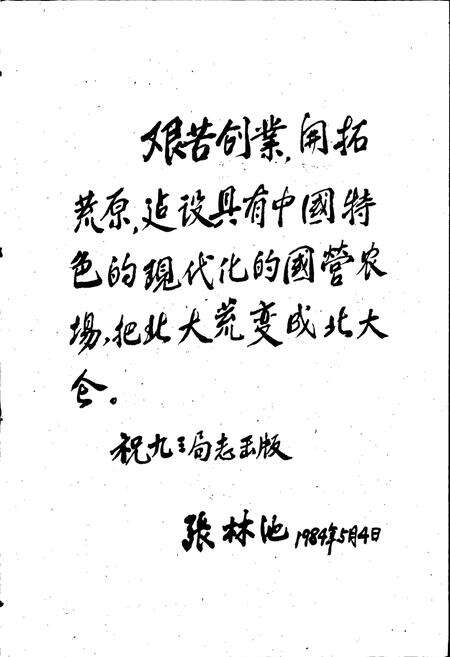 艰苦创業,開拓
荒原,建设具有中國特
色的現代化的國營农
場,把北大荒变成北大
仓。
祝九三局志出版
張林池 1984年5月4日